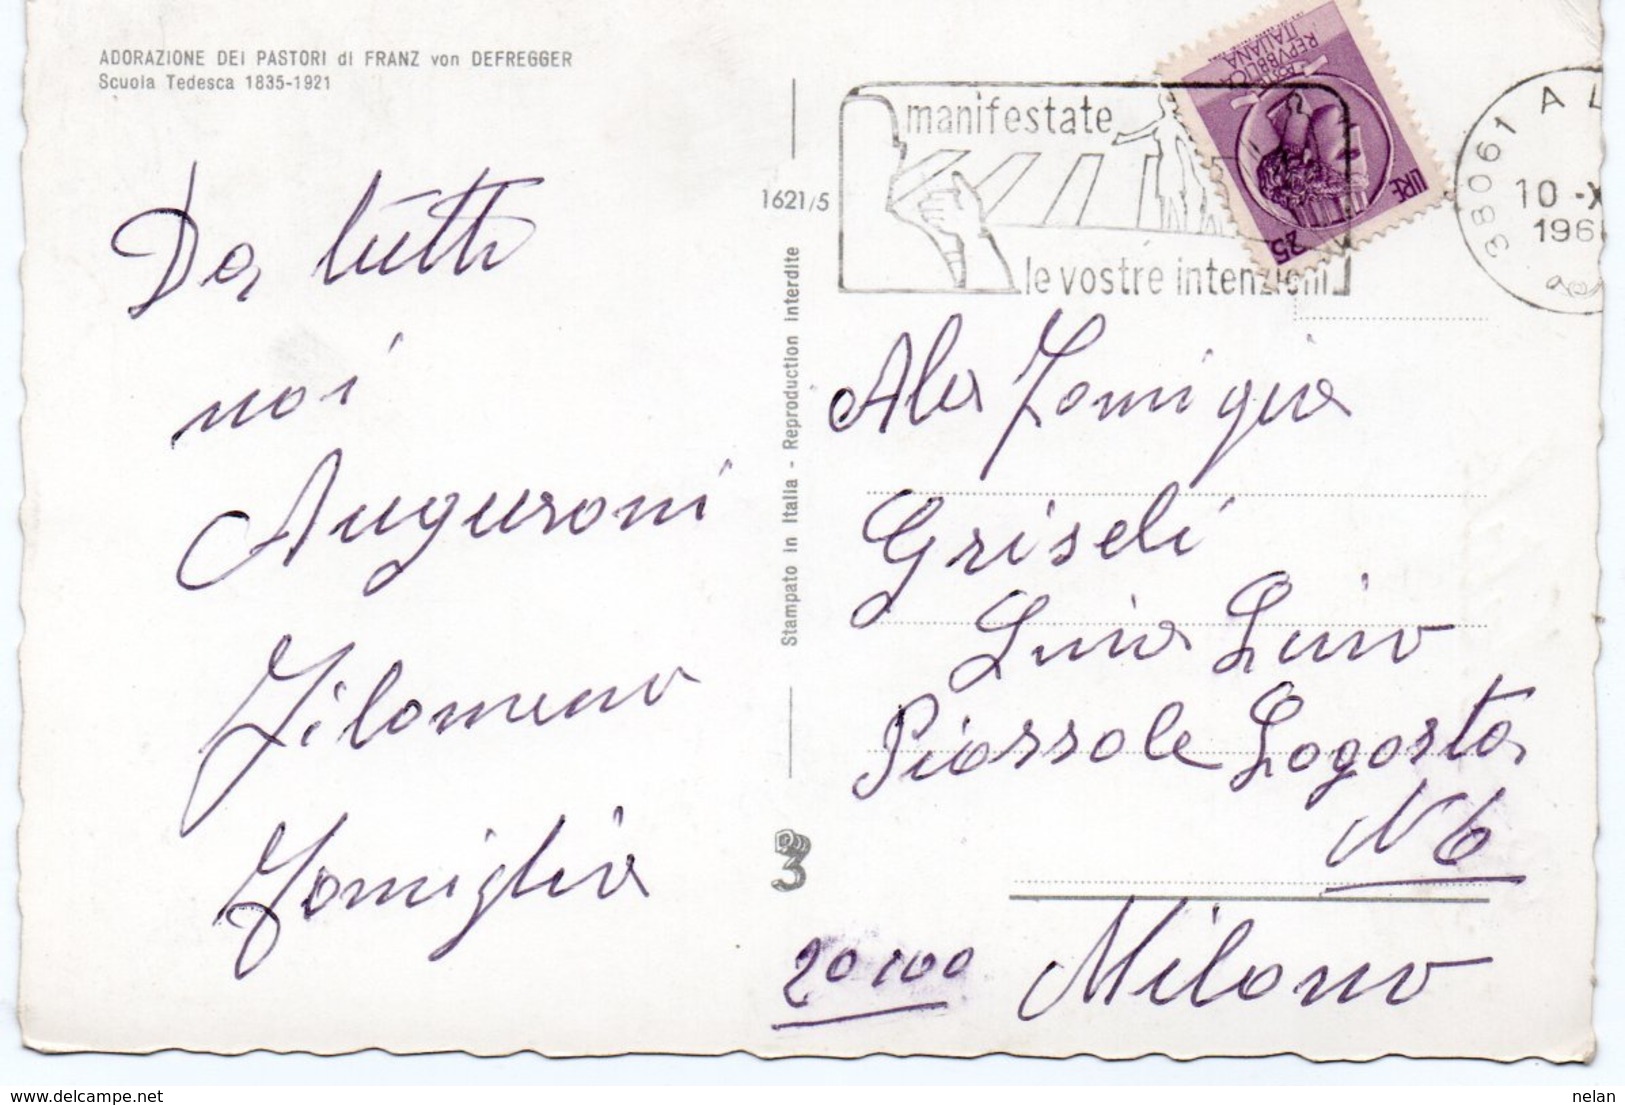 ADORAZIONE DEI PASTORI di FRANZ von DEFREGGER
Scuola Tedesca 1835-1921
Da tutti
noi
Auguroni
Filomena
Famiglia
1621/5
Stampato in Italia - Reproduction interdite
3
manifestate
le vostre intenzioni
REPVBBLICA
ITALIANA
LIRE
25
38061 AL
10 -X
196
Ala Famigia
Griseli
Luia Luio
Piassole Logosta
N 6
20100 Milano
www.delcampe.net
nelan